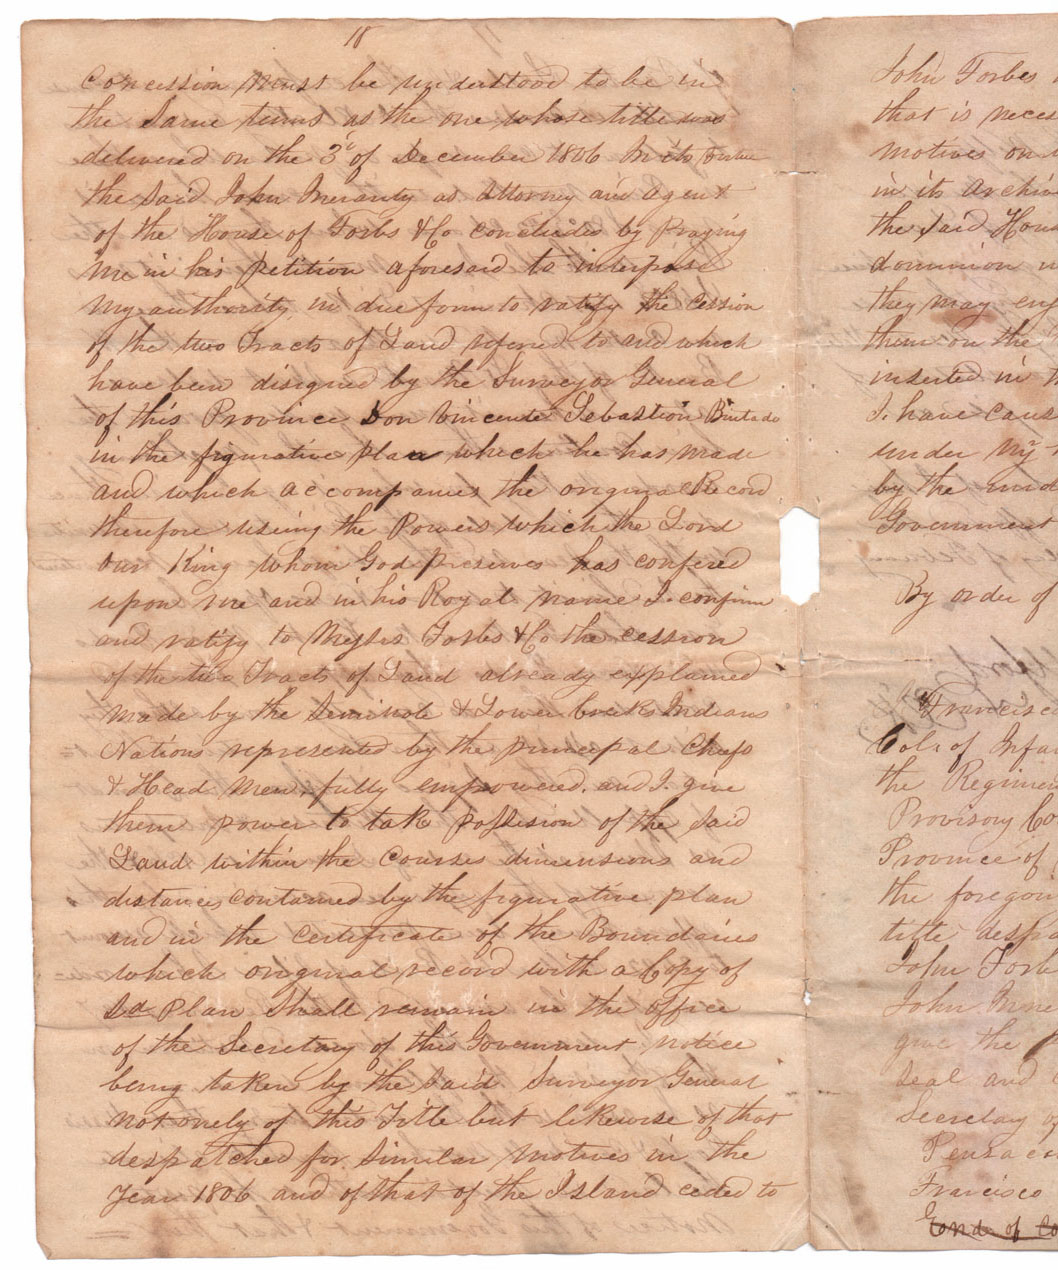 18
concession must be understood to be in
the Same terms as the one whose title was
delivered on the 3d of December 1806 In its virtue
the Said John Inerarity as Attorney and Agent
of the House of Forbs & Co concluded by Praying
me in his Petition aforesaid to interpose
my authority in due form to ratify the cession
of the two Tracts of Land refered to and which
have been disigned by the Surveyor General
of this Province Don Vincente Sebastion Bintado
in the figurative plan which he has made
and which accompanies the original Record
therefore useing the Powers which the Lord
our King whom God preserves has confered
upon me and in his Royal name I. confirm
and ratify to Messrs Forbs & Co the cession
of the two Tracts of Land already explained
made by the Seminole & Lower Creeks Indians
Nations represented by the principal Chefs
& Head Men, fully empowered. and I. give
them power to take possesion of the Said
Land within the Courses dimensions and
distances contained by the figurative plan
and in the certificate of the Boundaries
which original record with a Copy of
Sd Plan Shall remain in the office
of the Secretary of this Government notice
being taken by the Said Surveyor General
not onely of this Title but likewise of that
despatched for Similar motives in the
Year 1806 and of that of the Island ceded to
John Forbes
that is neces
motives on
in its archiv
the Said Hous
dominion
they may enj
them on the
inserted in
I. have caus
under my
by the
Government
By order of
Francisc
Col. of Infa
the Regimen
Provisory Co
Province of
the foregoin
title despa
John Forb
John Inne
give the
Seal and
Secretary of
Pensaco
Francisco
Conde of Co